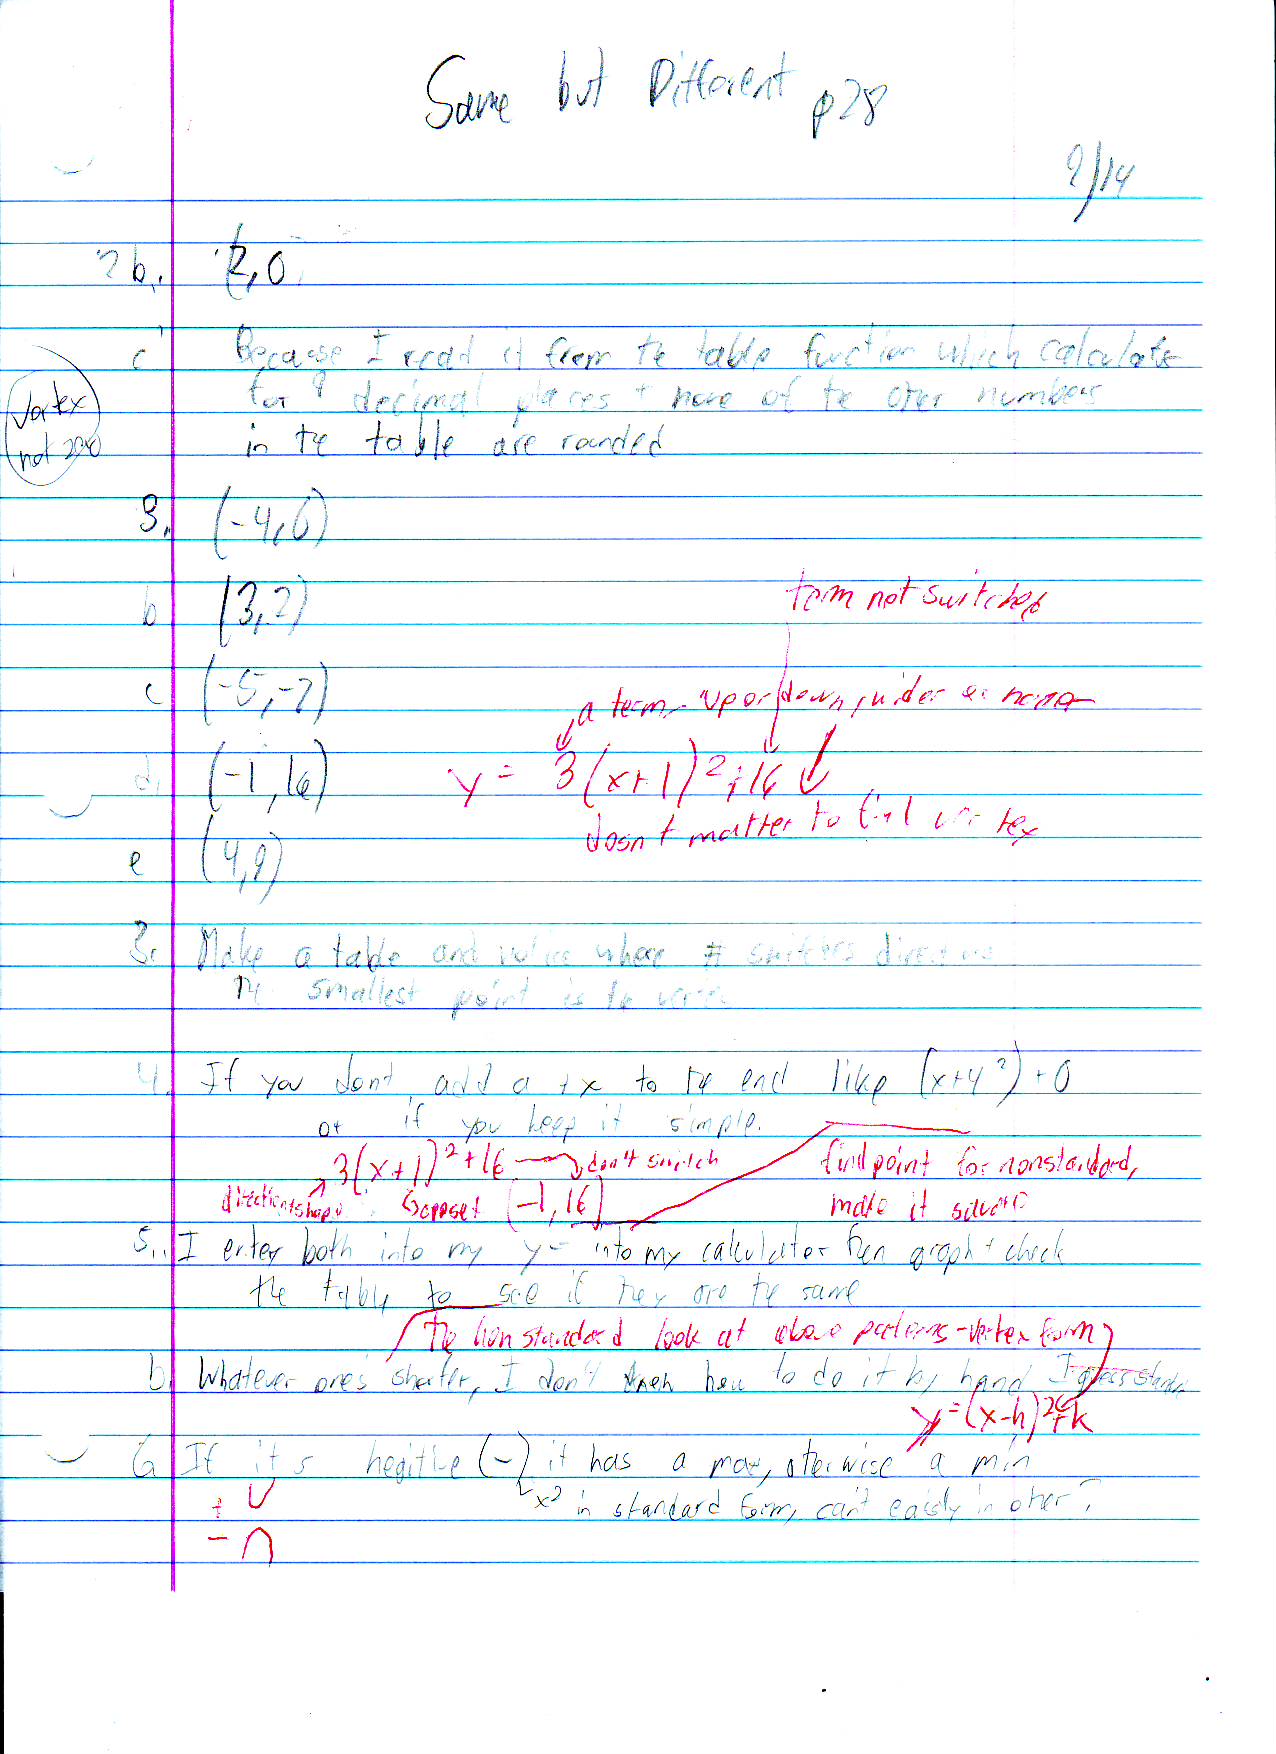 Same but Different p28
9/14
2b. (2,0
c Because I read it from the table function which calculate
for 9 decimal places + none of the other numbers
in the table are rounded
Vortex
not zero
3. (-4,6)
b (3,2)
term not switched
c (-5,-7)
a term, up or down, wider or
d. (-1,16) y = 3(x+1)²+16
dosn't matter to find vertex
e (4,9)
3. Make a table and notice where # switches
the smallest point is the
4. If you dont add a +x to the end like (x+4²)+0
or if you keep it simple.
3(x+1)²+16 don't switch
direction+shape (-1,16)
find point for nonstandard,
make it
5. I enter both into my y= into my calculator then graph + check
the table to see if they are the same
The non standard look at above patterns-vertex form
b. Whatever ones shorter, I don't how to do it by hand I guess
y=(x-h)²+k
6 If its negitive (-) it has a max, oterwise a min
x² in standard form, can't easily in other?
+ ∪
- ∩